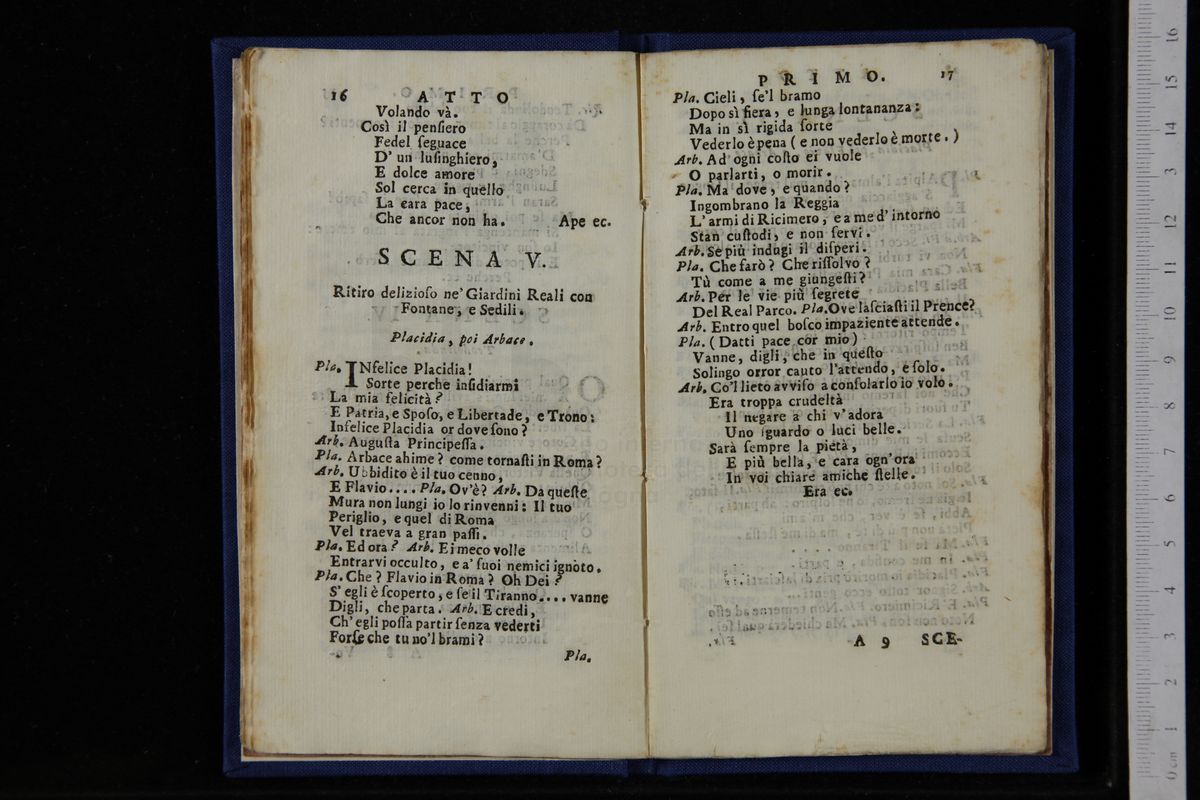 16 ATTO
Volando và.
Così il penſiero
Fedel ſeguace
D' un luſinghiero,
E dolce amore
Sol cerca in quello
La cara pace,
Che ancor non ha. Ape ec.
SCENA V.
Ritiro delizioſo ne' Giardini Reali con
Fontane, e Sedili.
Placidia, poi Arbace.
Pla. INfelice Placidia!
Sorte perche inſidiarmi
La mia felicità?
E Patria, e Spoſo, e Libertade, e Trono:
Infelice Placidia or dove ſono?
Arb. Auguſta Principeſſa.
Pla. Arbace ahime? come tornaſti in Roma?
Arb. Ubbidito è il tuo cenno,
E Flavio.... Pla. Ov'è? Arb. Da queſte
Mura non lungi io lo rinvenni: Il tuo
Periglio, e quel di Roma
Vel traeva a gran paſſi.
Pla. Ed ora? Arb. Ei meco volle
Entrarvi occulto, e a' ſuoi nemici ignoto.
Pla. Che? Flavio in Roma? Oh Dei?
S' egli è ſcoperto, e ſe il Tiranno.... vanne
Digli, che parta. Arb. E credi,
Ch' egli poſſa partir ſenza vederti
Forſe che tu no'l brami?
Pla.
PRIMO. 17
Pla. Cieli, ſe'l bramo
Dopo sì fiera, e lunga lontananza:
Ma in sì rigida ſorte
Vederlo è pena (e non vederlo è morte.)
Arb. Ad ogni coſto ei vuole
O parlarti, o morir.
Pla. Ma dove, e quando?
Ingombrano la Reggia
L' armi di Ricimero, e a me d' intorno
Stan cuſtodi, e non ſervi.
Arb. Se più indugi il diſperi.
Pla. Che farò? Che riſſolvo?
Tù come a me giungeſti?
Arb. Per le vie più ſegrete
Del Real Parco. Pla. Ove laſciaſti il Prence?
Arb. Entro quel boſco impaziente attende.
Pla. (Datti pace cor mio)
Vanne, digli, che in queſto
Solingo orror cauto l'attendo, e ſolo.
Arb. Co'l lieto avviſo a conſolarlo io volo.
Era troppa crudeltà
Il negare a chi v'adora
Uno ſguardo o luci belle.
Sarà ſempre la pietà,
E più bella, e cara ogn'ora
In voi chiare amiche ſtelle.
Era ec.
A 9 SCE-